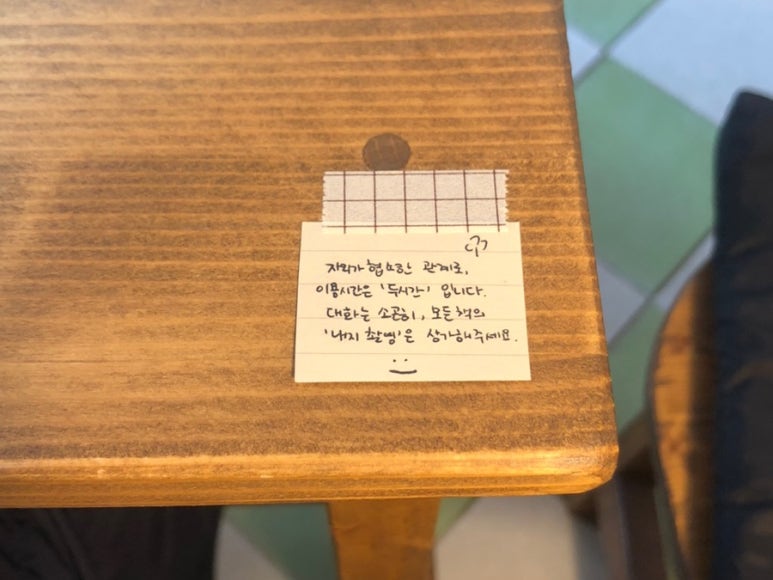 자리가 협소한 관계로,
이용시간은 '두시간' 입니다.
대화는 소곤히, 모든 책의
'내지 촬영'은 삼가해주세요.